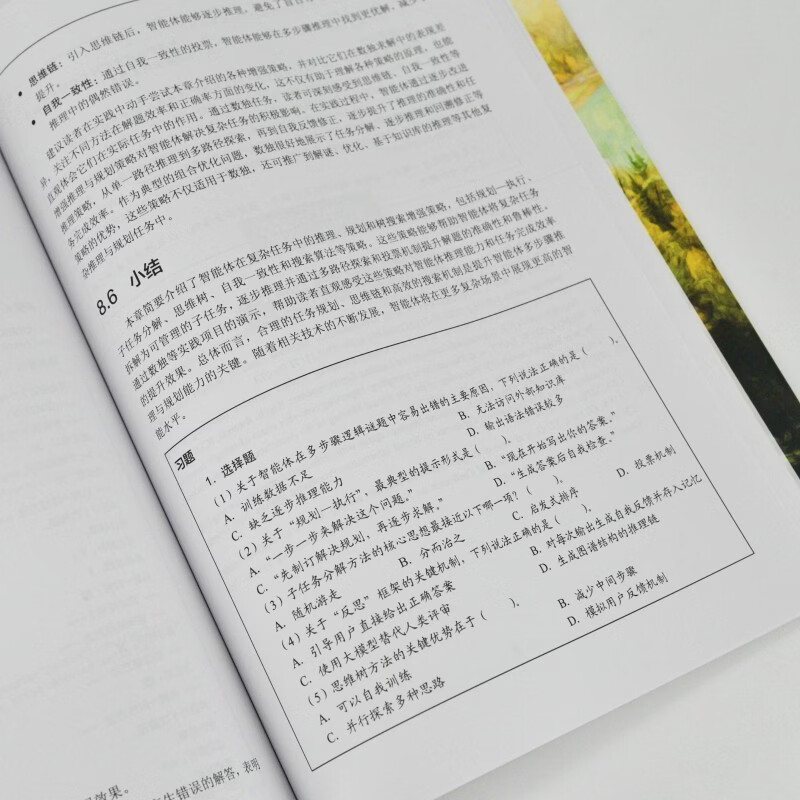 思维链：引入思维链后，智能体能够逐步推理，避免了盲目
提升。
• 自我一致性：通过自我一致性的投票，智能体能够在多步骤推理中找到更优解，减少
推理中的偶然错误。
建议读者在实践中动手尝试本章介绍的各种增强策略，并对比它们在数独求解中的表现差
异，关注不同方法在解题效率和正确率方面的变化。这不仅有助于理解各种策略的原理，也能
直观体会它们在实际任务中的作用。通过数独任务，读者可深刻感受到思维链、自我一致性等
增强推理与规划策略对智能体解决复杂任务的积极影响。在实践过程中，智能体通过逐步改进
推理策略，从单一路径推理到多路径探索，再到自我反馈修正，逐步提升了推理的准确性和任
务完成效率。作为典型的组合优化问题，数独很好地展示了任务分解、逐步推理和回溯修正等
策略的优势，这些策略不仅适用于数独，还可推广到解谜、优化、基于知识库的推理等其他复
杂推理与规划任务中。
8.6 小结
本章简要介绍了智能体在复杂任务中的推理、规划和树搜索增强策略，包括规划—执行、
子任务分解、思维树、自我一致性和搜索算法等策略。这些策略能够帮助智能体将复杂任务
拆解为可管理的子任务，逐步推理并通过多路径探索和投票机制提升解题的准确性和鲁棒性。
通过数独等实践项目的演示，帮助读者直观感受这些策略对智能体推理能力和任务完成效率
的提升效果。总体而言，合理的任务规划、思维链和高效的搜索机制是提升智能体多步骤推
理与规划能力的关键。随着相关技术的不断发展，智能体将在更多复杂场景中展现更高的智
能水平。
习题
1. 选择题
（1）关于智能体在多步骤逻辑谜题中容易出错的主要原因，下列说法正确的是（ ）。
A. 训练数据不足 B. 无法访问外部知识库
C. 缺乏逐步推理能力 D. 输出语法错误较多
（2）关于“规划—执行”，最典型的提示形式是（ ）。
A. “一步一步来解决这个问题。” B. “现在开始写出你的答案。”
C. “先制订解决规划，再逐步求解。” D. “生成答案后自我检查。”
（3）子任务分解方法的核心思想最接近以下哪一项？（ ）。
A. 随机游走 B. 分而治之 C. 启发式排序 D. 投票机制
（4）关于“反思”框架的关键机制，下列说法正确的是（ ）。
A. 引导用户直接给出正确答案 B. 对每次输出生成自我反馈并存入记忆
C. 使用大模型替代人类评审 D. 生成图谱结构的推理链
（5）思维树方法的关键优势在于（ ）。
A. 可以自我训练 B. 减少中间步骤
C. 并行探索多种思路 D. 模拟用户反馈机制
效果。
生错误的解答，表明